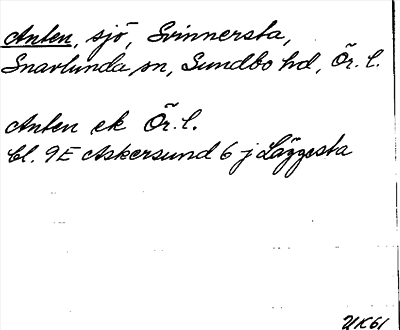 Anten, sjö, Svinnersta,
Snavlunda sn, Sundbo hd, Ör. l.
Anten ek Ör. l.
bl. 9E Askersund 6 j Läggesta
UK61